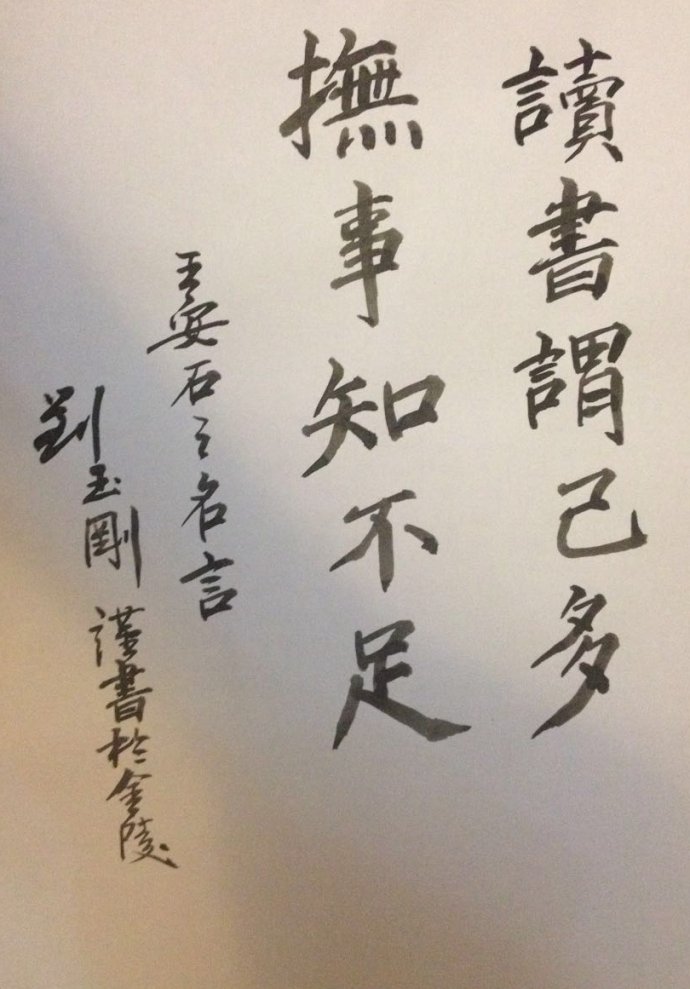 讀書謂己多
撫事知不足
王安石之名言
劉玉剛 謹書於金陵